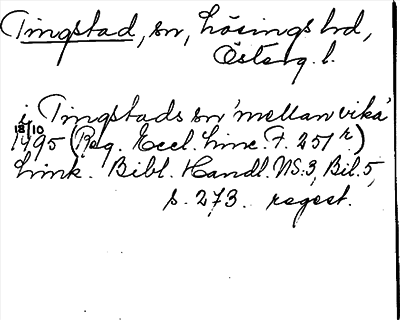 Tingstad, sn, Lösings hd,
Österg. l.
i Tingstads sn 'mellan vika'
18/10
1495 (Reg. Eccl. Linc. F. 251 r.)
Link. Bibl. Handl. NS:3, Bil. 5,
s. 273. regest.